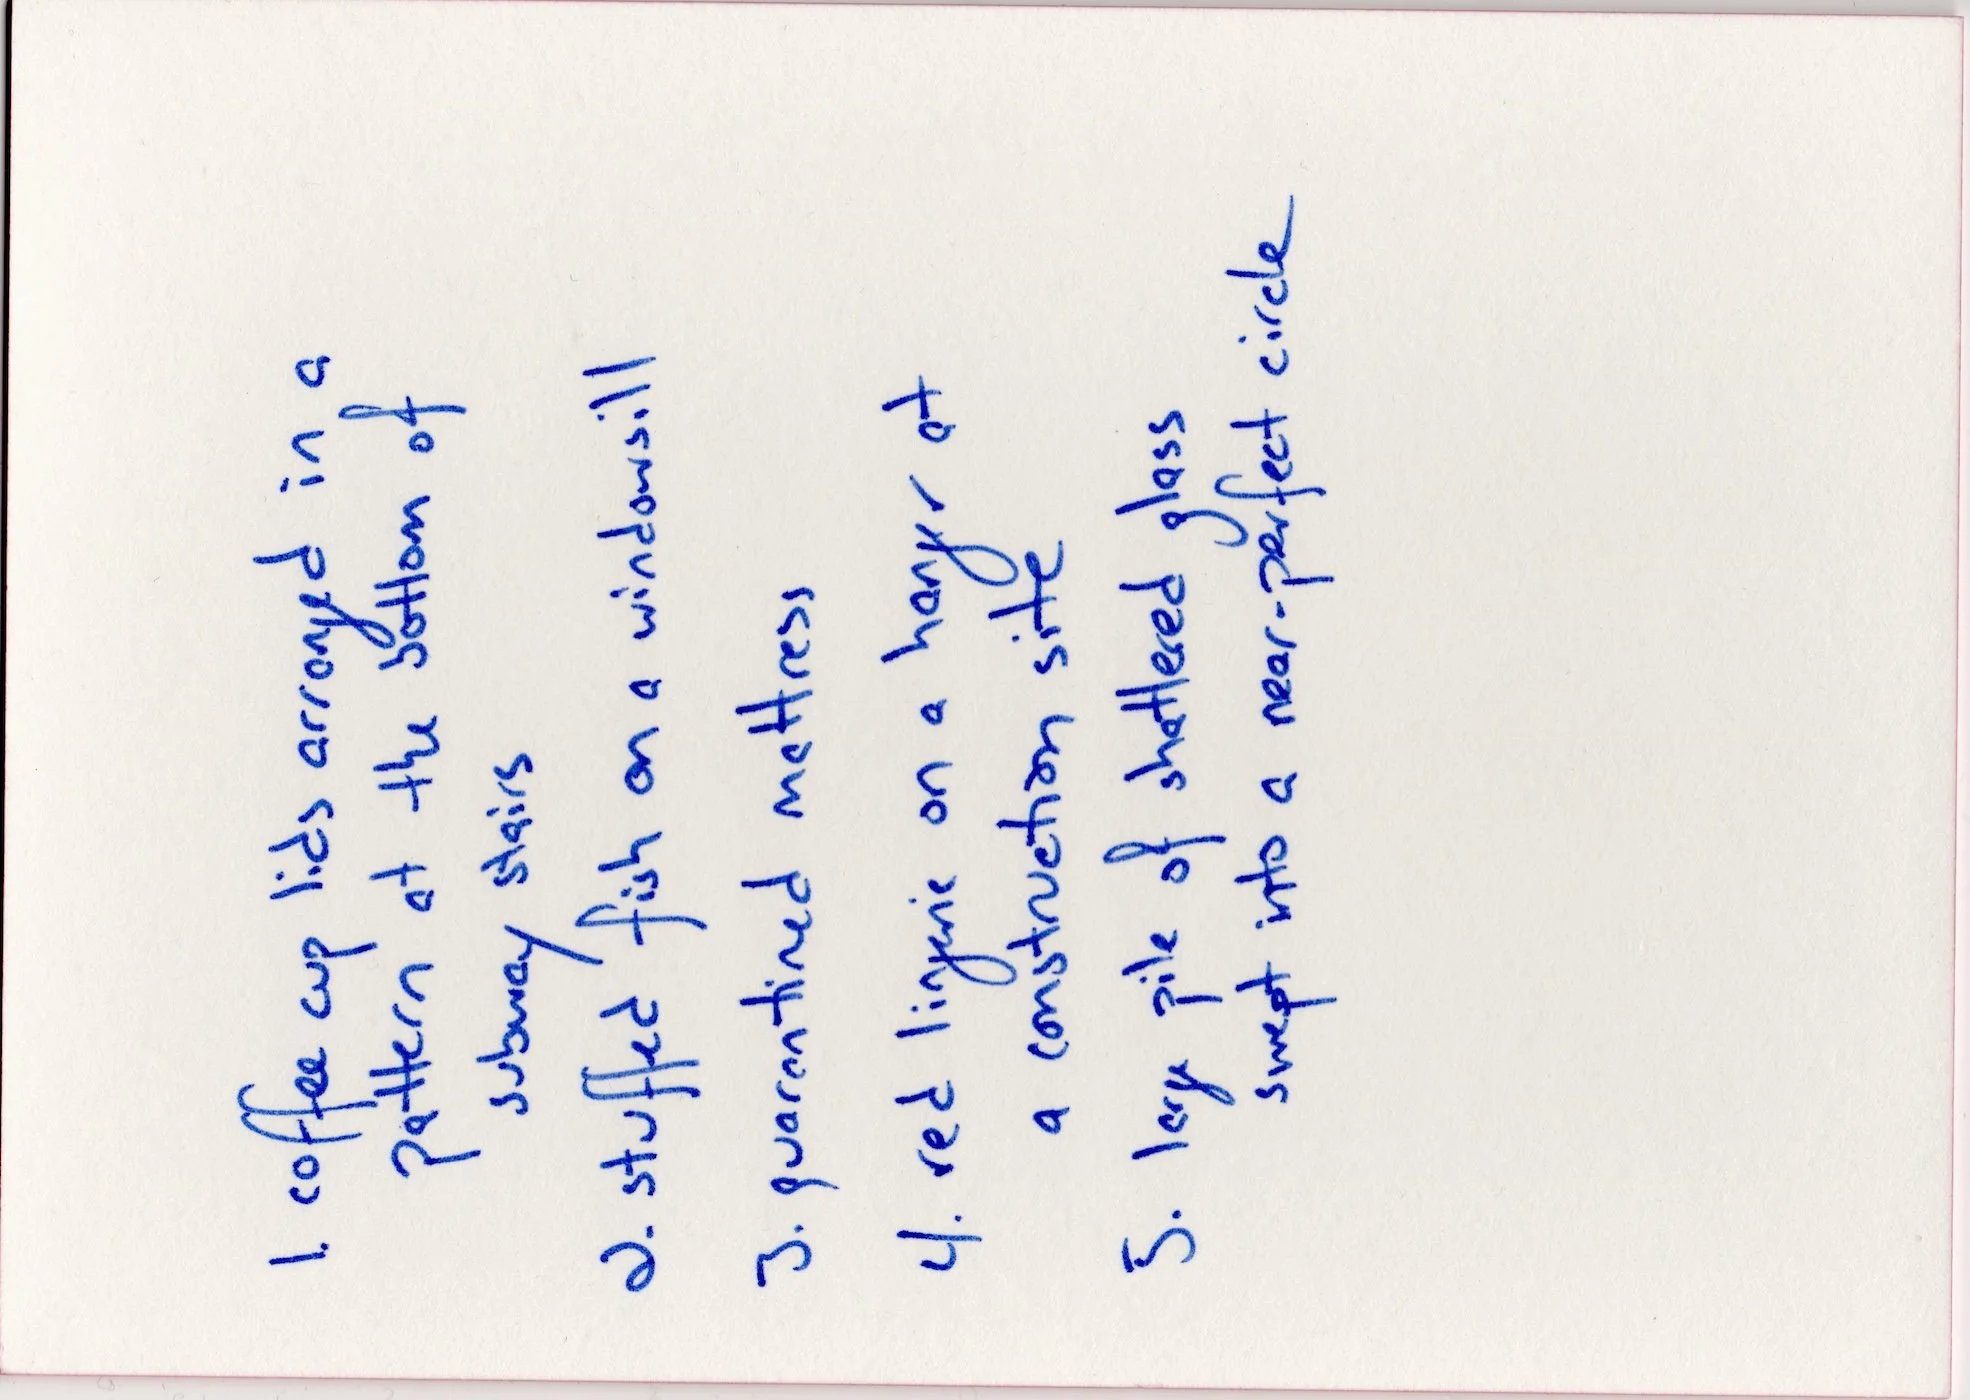 1. coffee cup lids arranged in a
pattern at the bottom of
subway stairs
2. stuffed fish on a windowsill
3. quarantined mattress
4. red lingerie on a hanger at
a construction site
5. large pile of shattered glass
swept into a near-perfect circle